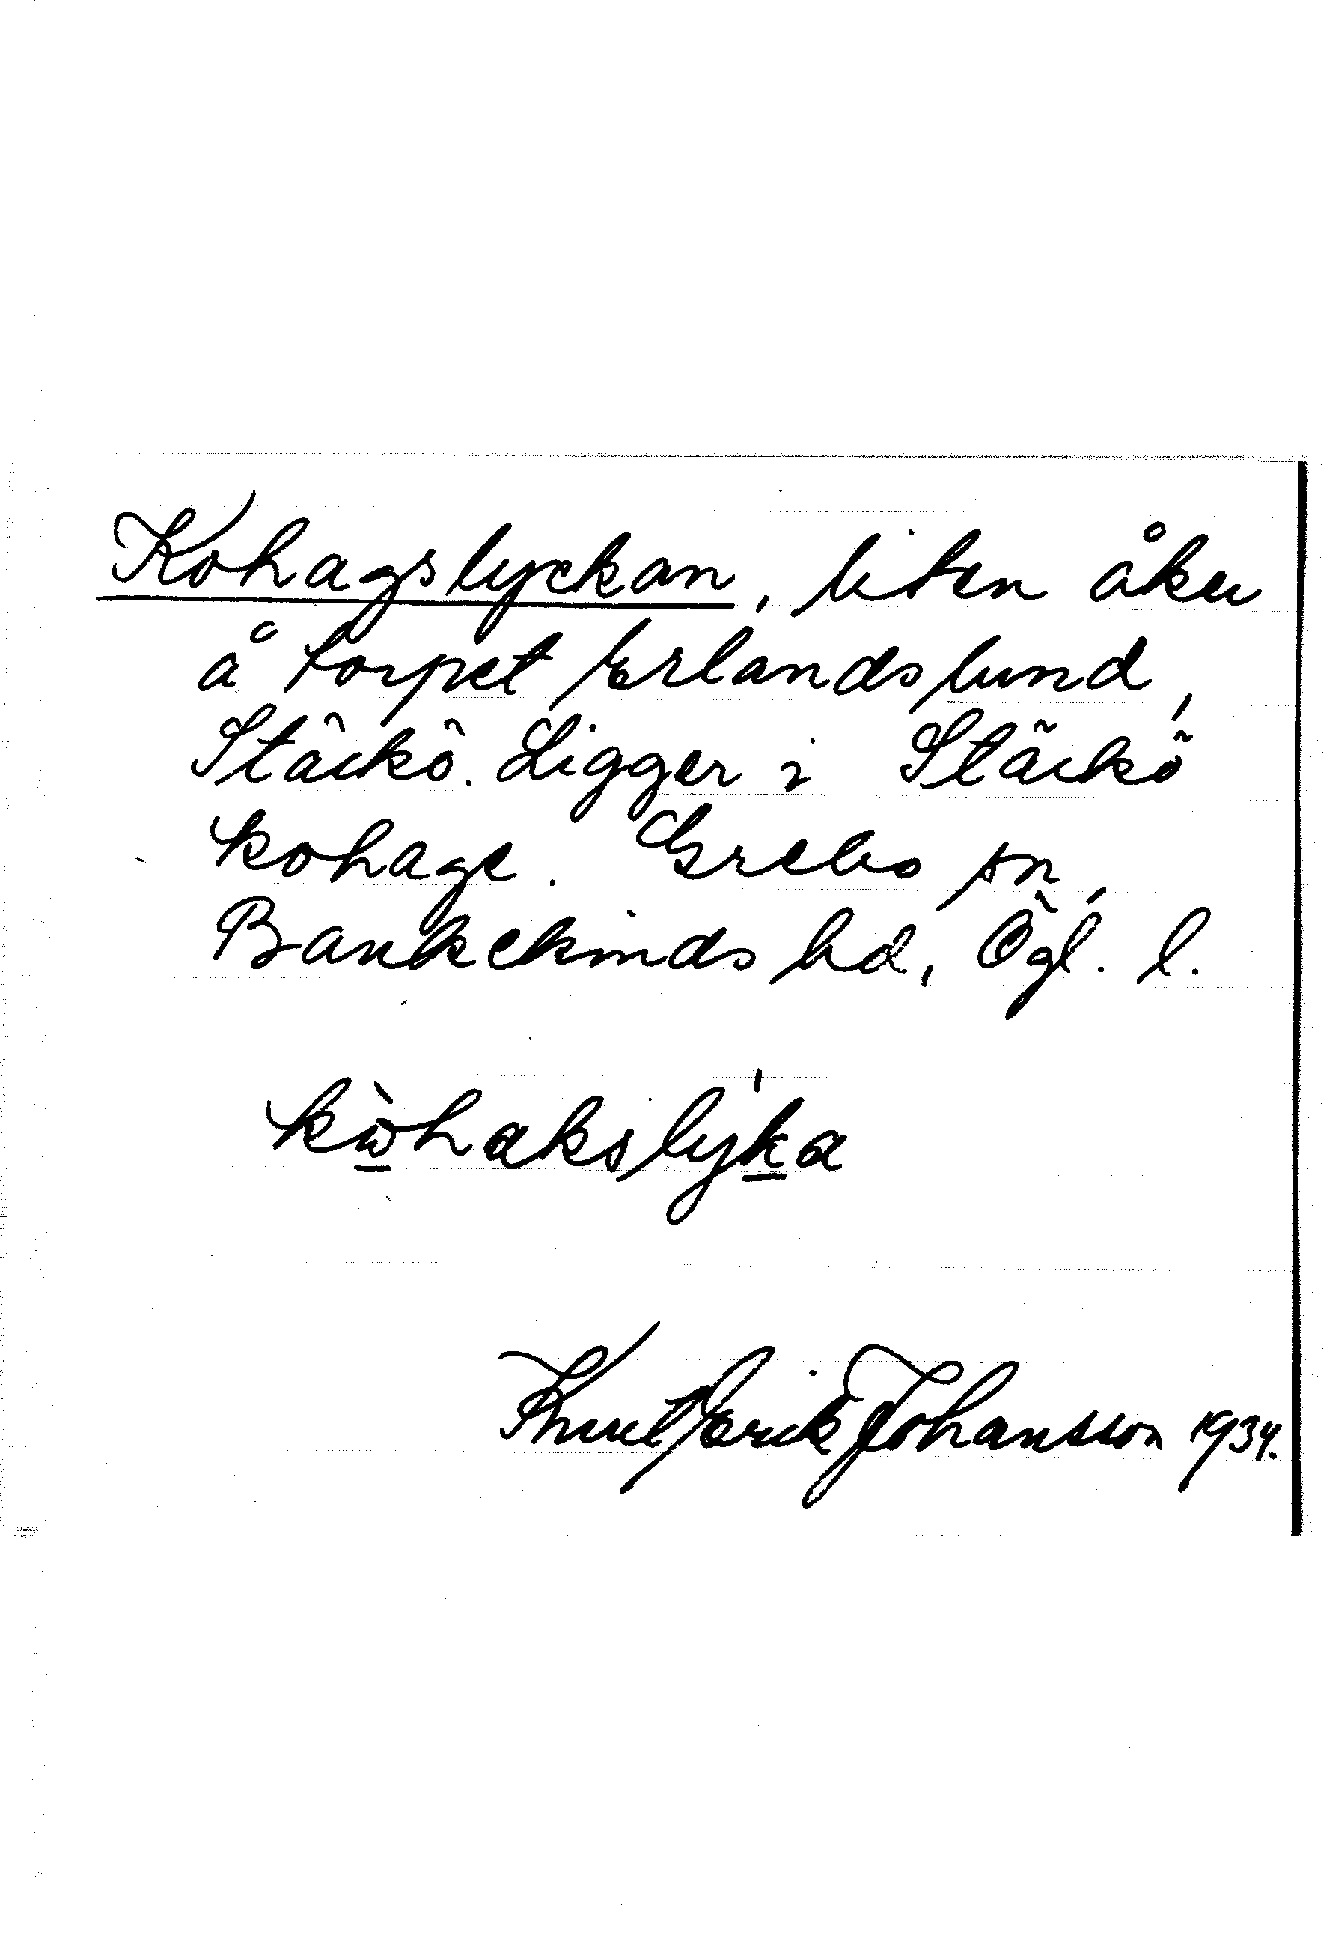 Kohagslyckan, liten åker
å torpet Erlandslund,
Stäckö. Ligger i Stäckö
kohage. Grebo sn,
Bankekinds hd, Ögl. l.
kὼhakslyka
Knut Erik Johansson 1934.